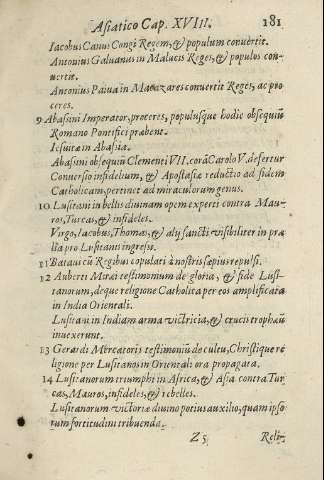 Asiatico Cap. XVIII. 181
Iacobus Canus Congi Regem, & populum conuertit.
Antonius Galuanus in Malucis Reges, & populos con-
uertit.
Antonius Paiua in Macazares conuertit Reges, ac pro
ceres.
9 Abassini Imperator, proceres, populusque hodie obsequiũ
Romano Pontifici præbent.
Iesuitæ in Abassia.
Abassini obsequiũ Clementi VII. corã Carolo V. defertur
Conuersio infidelium, & Apostasiæ reductio ad fidem
Catholicam, pertinet ad miraculorum genus.
10 Lusitani in bellis diuinam opem experti contra Mau-
ros, Turcas, & infideles.
Virgo, Iacobus, Thomas, & alij sancti visibiliter in prœ
lia pro Lusitanis ingressi.
11 Bataui cũ Regibus copulati à nostris sæpius repulsi.
12 Auberti Miræi testimonium de gloria, & fide Lusi-
tanorum, deque religione Catholica per eos amplificata
in India Orientali.
Lusitani in Indiam arma victricia, & crucis trophæũ
inuexerunt.
13 Gerardi Mercatoris testimoniũ de cultu, Christique re
ligione per Lusitanos in Orientali ora propagata.
14 Lusitanorum triumphi in Africa, & Asia contra Tur
cas, Mauros, infideles, & rebelles.
Lusitanorum victoriæ diuino potius auxilio, quam ipso
rum fortitudini tribuenda.
Z 5 Reli-